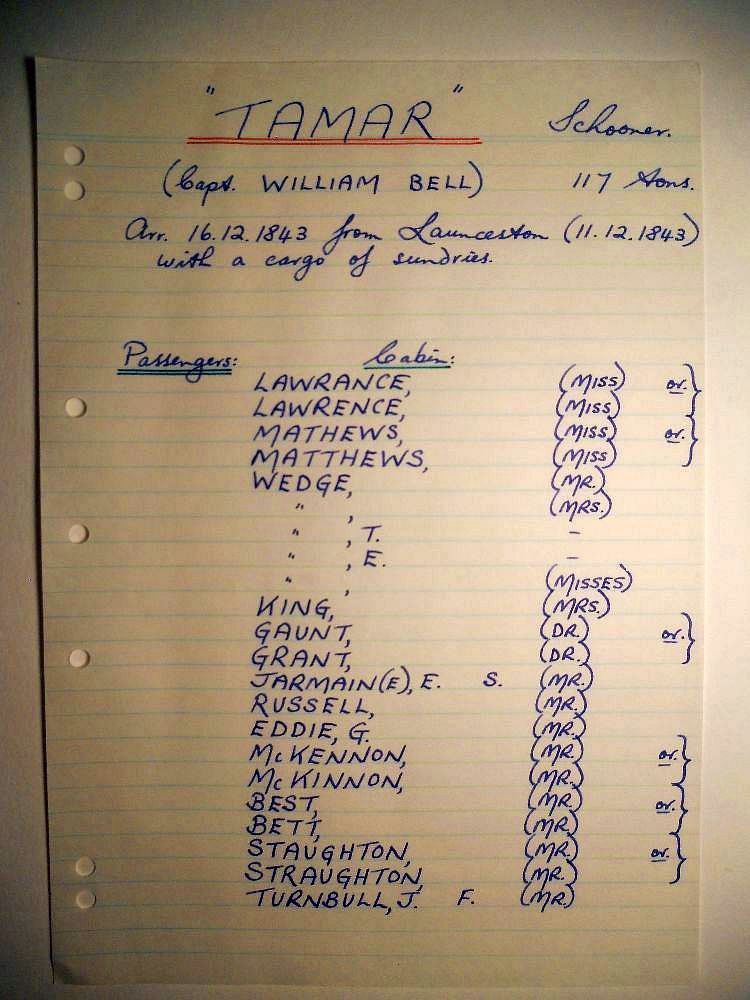 "TAMAR" Schooner.
(Capt. WILLIAM BELL) 117 tons.
Arr. 16.12.1843 from Launceston (11.12.1843)
with a cargo of sundries.
Passengers: Cabin:
LAWRANCE, (MISS) or. }
LAWRENCE, (MISS)
MATHEWS, (MISS) or. }
MATTHEWS, (MISS)
WEDGE, (MR.)
" , (MRS.)
" , T. -
" , E. -
" , (MISSES)
KING, (MRS.)
GAUNT, (DR.) or. }
GRANT, (DR.)
JARMAIN(E), E. S. (MR.)
RUSSELL, (MR.)
EDDIE, G. (MR.)
McKENNON, (MR.) or. }
McKINNON, (MR.)
BEST, (MR.) or. }
BETT, (MR.)
STAUGHTON, (MR.) or. }
STRAUGHTON, (MR.)
TURNBULL, J. F. (MR)